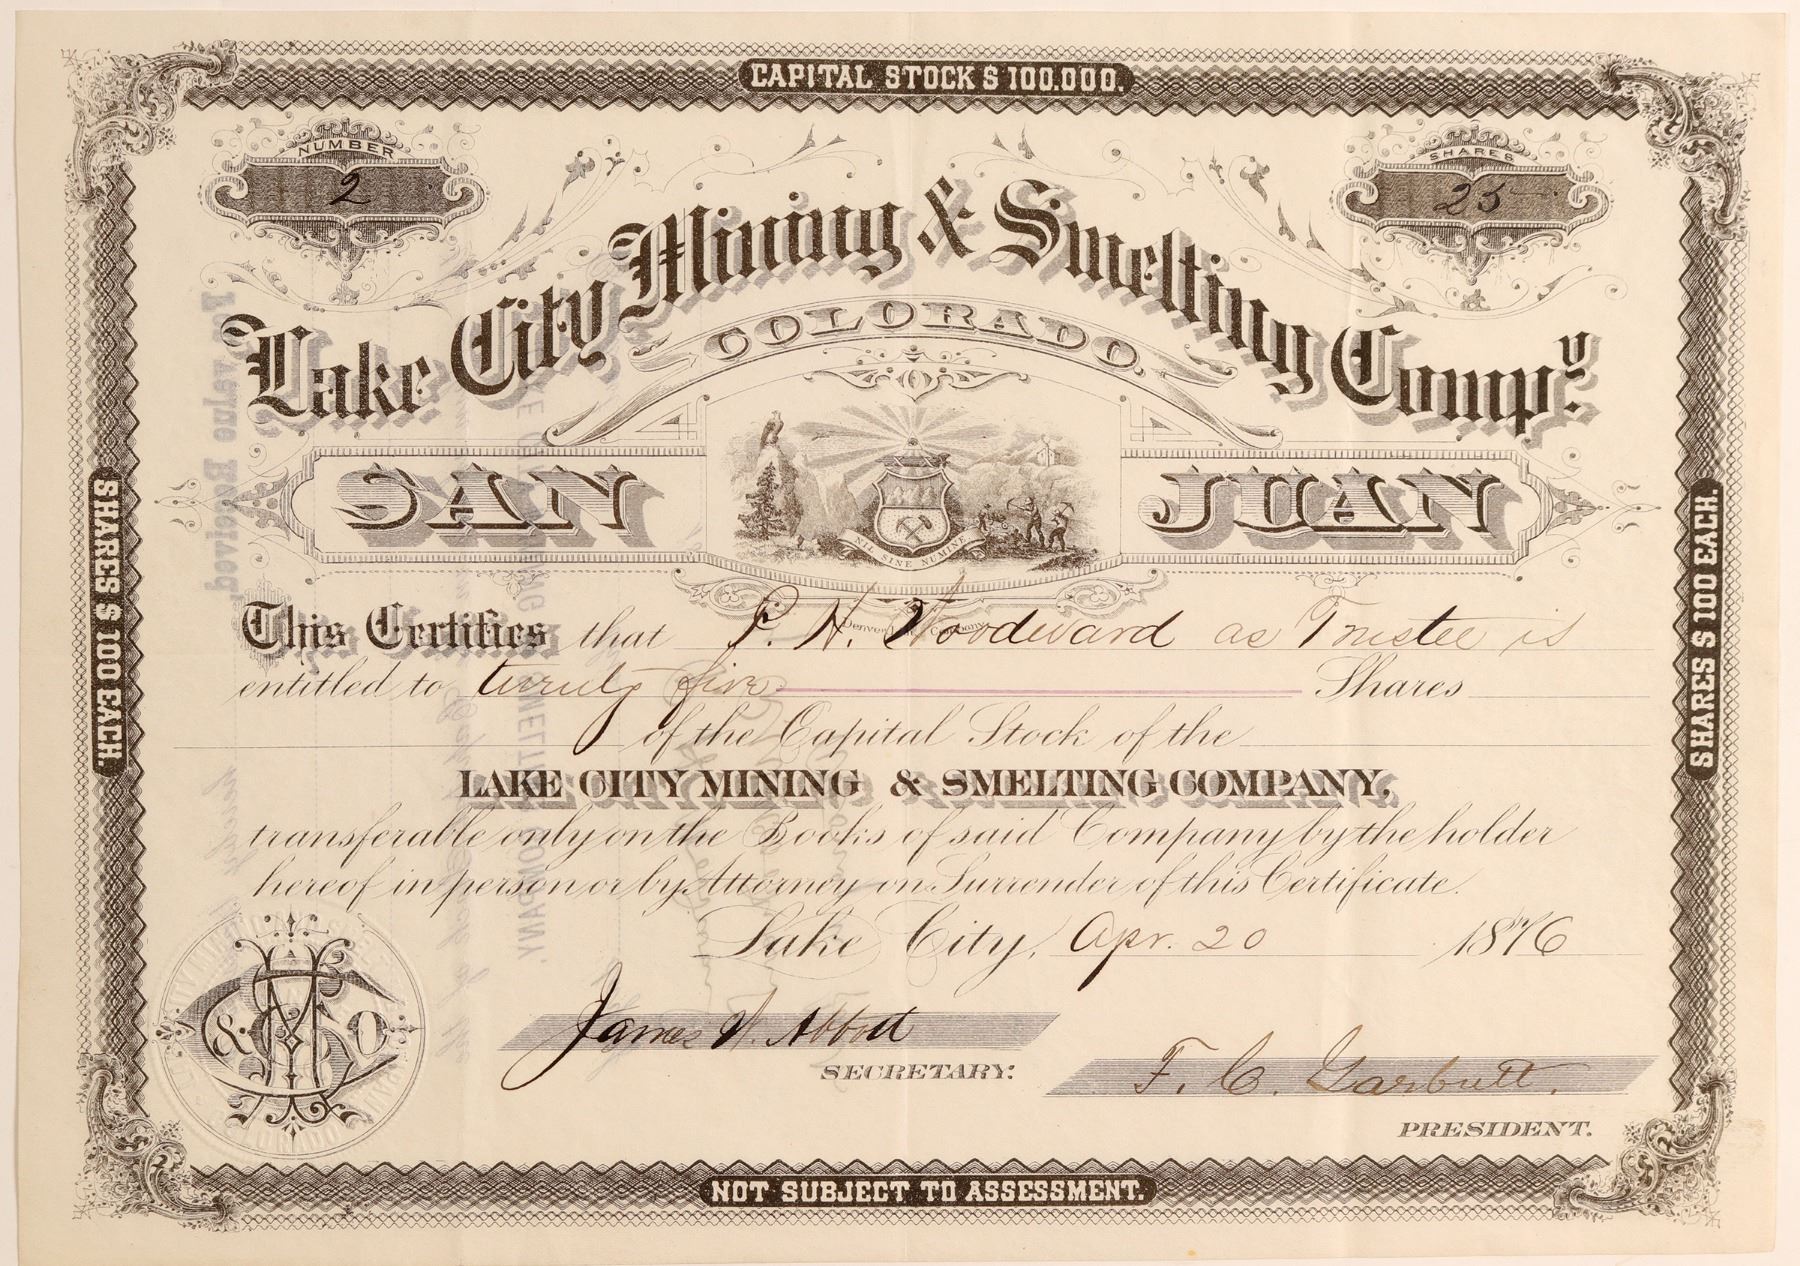 CAPITAL STOCK $ 100.000.
NUMBER
2
SHARES
25
Lake City Mining & Smelting Compy.
COLORADO.
SAN JUAN
NIL SINE NUMINE
This Certifies that P. H. Woodward as Trustee is
entitled to twenty five Shares
of the Capital Stock of the
LAKE CITY MINING & SMELTING COMPANY,
transferable only on the Books of said Company by the holder
hereof in person or by Attorney on Surrender of this Certificate.
Lake City, Apr. 20 1876
James W. Abbott
SECRETARY:
F. C. Garbutt.
PRESIDENT.
SHARES $ 100 EACH.
SHARES $ 100 EACH.
NOT SUBJECT TO ASSESSMENT.